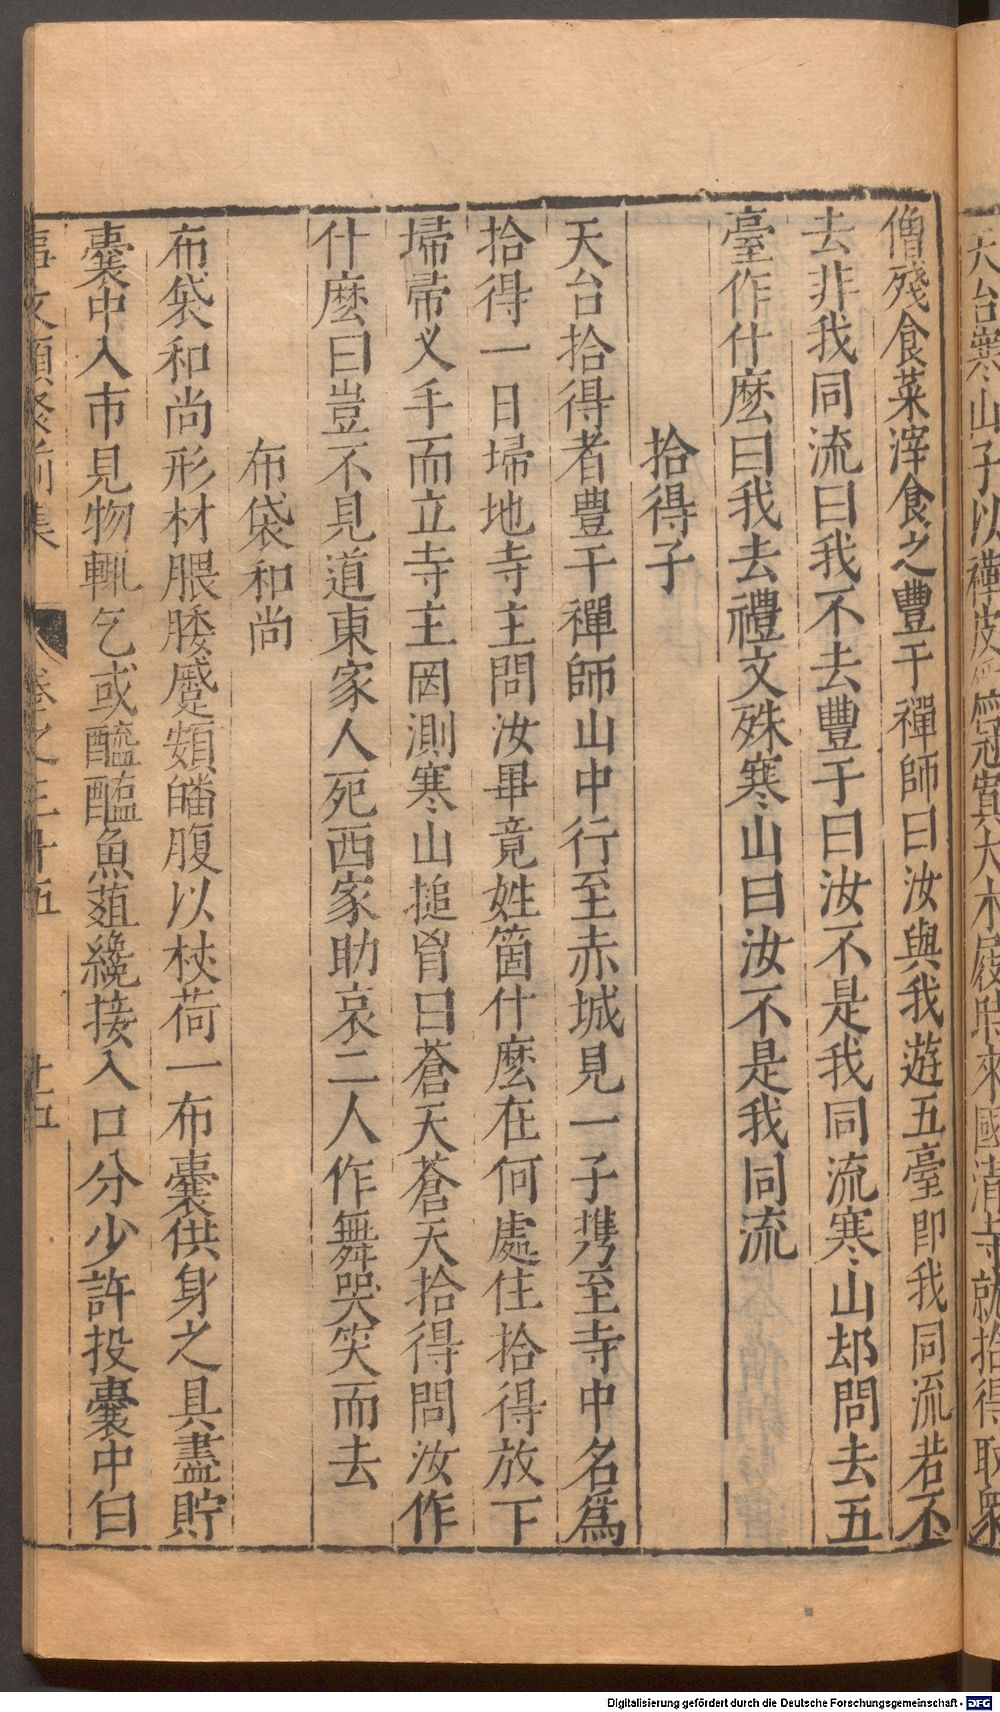 天台寒山子以樺皮爲冠曳大木屐時來國清寺就拾得取衆
僧殘食菜滓食之豐干禪師曰汝與我遊五臺即我同流若不
去非我同流曰我不去豐于曰汝不是我同流寒山却問去五
臺作什麽曰我去禮文殊寒山曰汝不是我同流
拾得子
天台拾得者豊干禪師山中行至赤城見一子携至寺中名爲
拾得一日埽地寺主問汝畢竟姓箇什麽在何處住拾得放下
埽帚义手而立寺主罔測寒山搥胷曰蒼天蒼天拾得問汝作
什麽曰豈不見道東家人死西家助哀二人作舞哭笑而去
布袋和尚
布袋和尚形材腲脮蹙頞皤腹以杖荷一布囊供身之具盡貯
囊中入市見物輒乞或醯醢魚葅纔接入口分少許投囊中曰
事文類聚前集 卷之三十五 十五
Digitalisierung gefördert durch die Deutsche Forschungsgemeinschaft - DFG